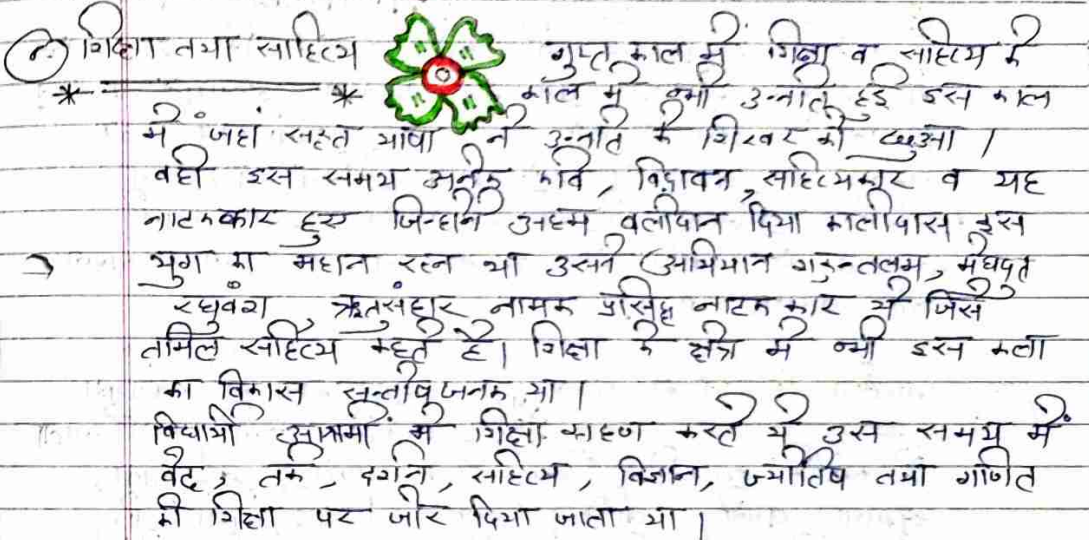 2. शिक्षा तथा साहित्य गुप्त काल में शिक्षा व साहित्य के
काल में भी उन्नति हुई इस काल
में जहां संस्कृत भाषा ने उन्नति के शिखर को छुआ ।
वही इस समय अनेक कवि, विद्वावन, साहित्यकार व यह
नाटककार हुए जिन्होंने अहम वलीदान दिया कालीदास इस
युग का महान रत्न था उसने (अभिमान शकुन्तलम, मेघदुत
रघुवंश, ऋतुसंहार नामक प्रसिद्ध नाटक कार थे जिसे
तमिल साहित्य कहते हैं। शिक्षा के क्षेत्र में भी इस कला
का विकास सन्तोषजनक था ।
विद्यार्थी आश्रमों में शिक्षा ग्रहण करते थे उस समय में
वेद, तर्क, दर्शन, साहित्य, विज्ञान, ज्योतिष तथा गणित
की शिक्षा पर जोर दिया जाता था ।